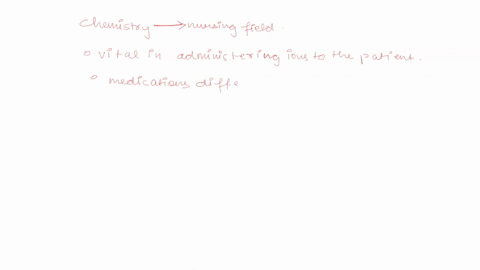 Chemistry → nursing field.
o vital in administering ions to the patient.
o medications diffe